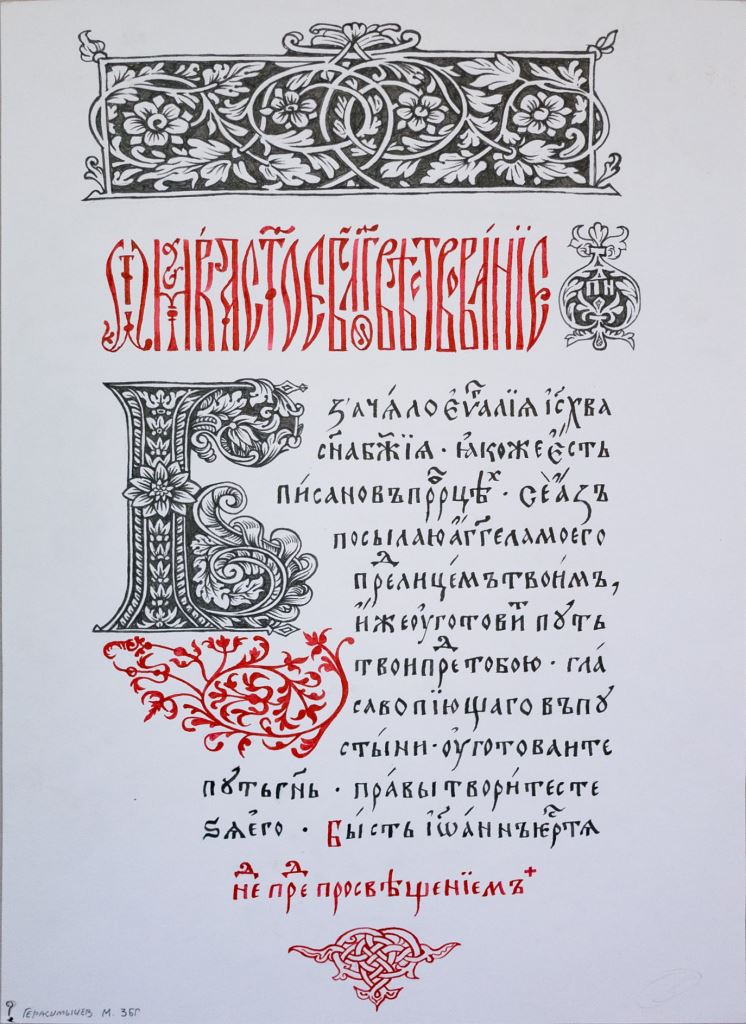 Ѿ МА́РКА СТ҃ОЕ БЛГ҃ВѢСТВОВА́НЇЕ
ПН
Б
зачѧ́ло є҆ѵⷢ҇алїѧ і҆с҃хва
сн҃а бж҃їѧ · ꙗ҆́коже є҆́сть
пи́сано въ прⷪ҇рцѣⷯ · се а҆́зъ
посылаю а҆́гг҃ела моего
преⷣ лице́мъ твои́мъ,
и҆́же ᲂу҆готовиⷮ пꙋть
твои преⷣ тобою · гла
съ вопїющаго въ пꙋ
сты́ни · ᲂу҆готоваите
пꙋть гн҃ь · пра́вы твори́те сте
ѕѧ є҆го · Бы́сть і҆ѡа́ннъ крⷭ҇тѧ
неⷣ преⷣ просвѣщенїемъ +
Герасимычев М. 3бг